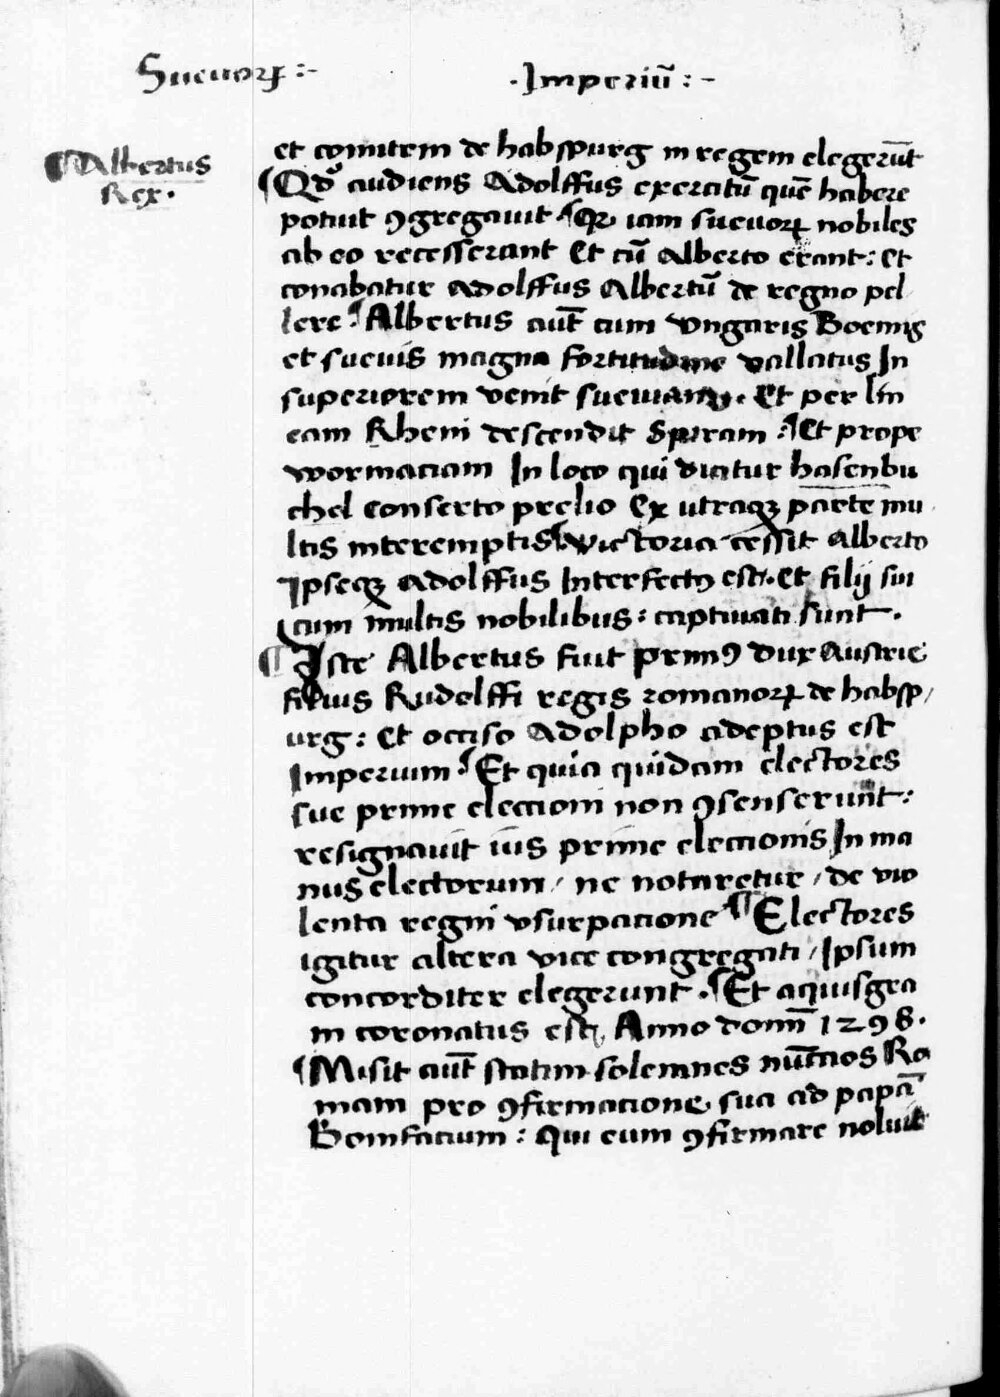 Sueuoꝝ :-
·Imperiū :-
¶Albertus
Rex·
et comitem de habspurg in regem elegerūt
¶Qd' audiens Adolffus exercitū quē habere
potuit ꝯgregauit ¶Qꝛ iam sueuoꝝ nobiles
ab eo recesserant Et cū Alberto erant: Et
conabatur Adolffus Albertū de regno pel
lere ¶Albertus aut̄ cum vngaris Boemis
et sueuis magna fortitudine vallatus In
superiorem venit sueuiam· Et per lin
eam Rheni descendit Spiram :¶Et prope
wormaciam In loco qui dicitur hasenbu
chel Conserto prelio Ex utraqꝫ parte mu
ltis interemptis ¶victoria cessit Alberto
Ipseqꝫ Adolffus Interfectꝰ est· Et filij sui
cum multis nobilibus: captiuati sunt·
¶Iste Albertus fuit primꝰ dux Austrie
filius Rudolffi regis romanoꝝ de habsp/
urg: Et occiso Adolpho adeptus est
Imperium ¶Et quia quidam electores
sue prime electioni non ꝯsenserunt:
resignauit ius prime electionis In ma
nus electorum/ ne notaretur/ de vio
lenta regni vsurpacione ¶Electores
igitur altera vice congregati/ Ipsum
concorditer elegerunt· ¶Et aquisgra
ni coronatus est, Anno domī 1298·
¶Misit aut̄ statim solemnes nūcios Ro
mam pro ꝯfirmacione sua ad papā
Bonifacium: Qui eum ꝯfirmare noluit